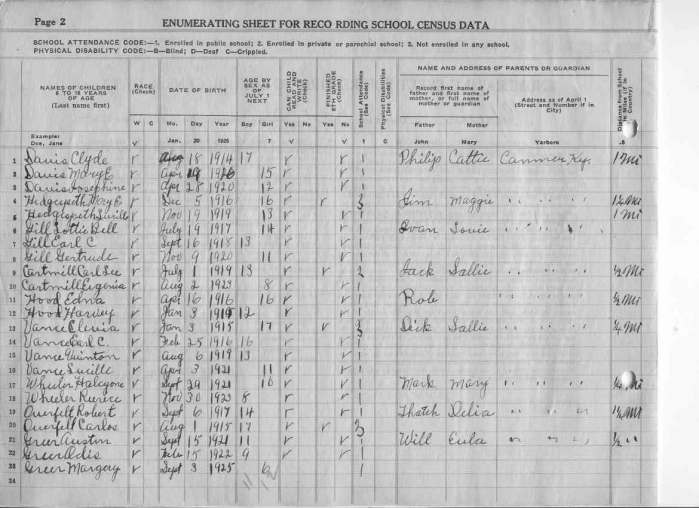 Page 2
ENUMERATING SHEET FOR RECO RDING SCHOOL CENSUS DATA
SCHOOL ATTENDANCE CODE:—1. Enrolled in public school; 2. Enrolled in private or parochial school; 3. Not enrolled in any school.
PHYSICAL DISABILITY CODE:—B—Blind; D—Deaf C—Crippled.
NAMES OF CHILDREN 6 TO 18 YEARS OF AGE (Last name first)
RACE (Check)
DATE OF BIRTH
AGE BY SEX AS OF JULY 1 NEXT
CAN CHILD READ AND WRITE (Check)
FINISHED 8TH GRADE (Check)
School Attendance (See Code)
Physical Disabilities (See Code)
NAME AND ADDRESS OF PARENTS OR GUARDIAN
Record first name of father and first name of mother, or full name of mother or guardian
Address as of April 1 (Street and Number if in City)
Distance from School in Miles (If in Country)
W C Mo. Day Year Boy Girl Yes No Yes No 1 C Father Mother
Example: Doe, Jane V Jan. 20 1925 7 V V John Mary Yarboro .8
1 Davis Clyde r Aug 18 1914 17 r r 1 Philip Cattie Canmer Ky. 1 Mi
2 Davis Mary E r Apr 19 1916 15 r r 1
3 Davis Josephine r Apr 28 1920 12 r r 1
4 Hedgepeth Mary E r Dec 5 1916 16 r r 3 Jim Maggie " " " 1½ Mi
5 Hedgepeth Luville r Nov 19 1919 13 r r 1 1 Mi
6 Gill Lottie Bell r July 19 1917 14 r r 1 Ivan Louie " " "
7 Gill Earl C r Sept 16 1918 13 r r 1
8 Gill Gertrude r Nov 9 1920 11 r r 1
9 Cartmill Carl Lee r July 1 1919 13 r r 2 Jack Sallie " " " ½ Mi
10 Cartmill Eugenia r Aug 2 1923 8 r r 1
11 Hood Edna r Apr 16 1916 16 r r 1 Rob " " " ½ Mi
12 Hood Harvey r Jan 3 12 r r 1
13 Vance Clevia r Jan 3 1915 17 r r 3 Dick Sallie " " " ¼ Mi
14 Vance Earl C. r Feb 25 1916 16 r r 1
15 Vance Quinton r Aug 6 1919 13 r r 1
16 Vance Lucille r Apr 3 1921 11 r r 1
17 Wheeler Halcyone r Sept 29 1921 10 r r 1 Mark Mary " " " Mi
18 Wheeler r Nov 30 1923 8 r r 1
19 Overfelt Robert r Sept 6 1917 14 r r 1 Thatch Delia " " " 1½ Mi
20 Overfelt Carlos r Aug 1 1915 17 r r 3
21 Greer Austin r Sept 15 1921 11 r r 1 Will Eula " " " ½ "
22 Greer Odis r Feb 15 1922 9 r r 1
23 Greer Margay r Sept 3 1925 6 1
24 11 12